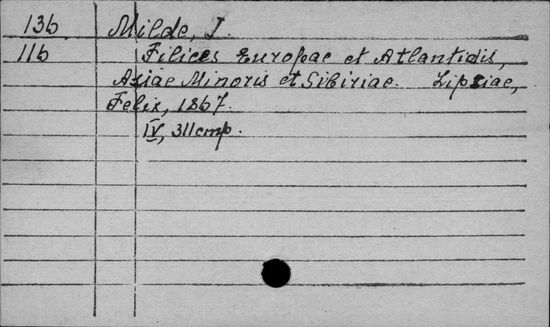 13b Milde, J.
11b Filices Europae et Atlantidis,
Asiae Minoris et Sibiriae. Lipsiae,
Felix, 1867.
IV, 311 стр.